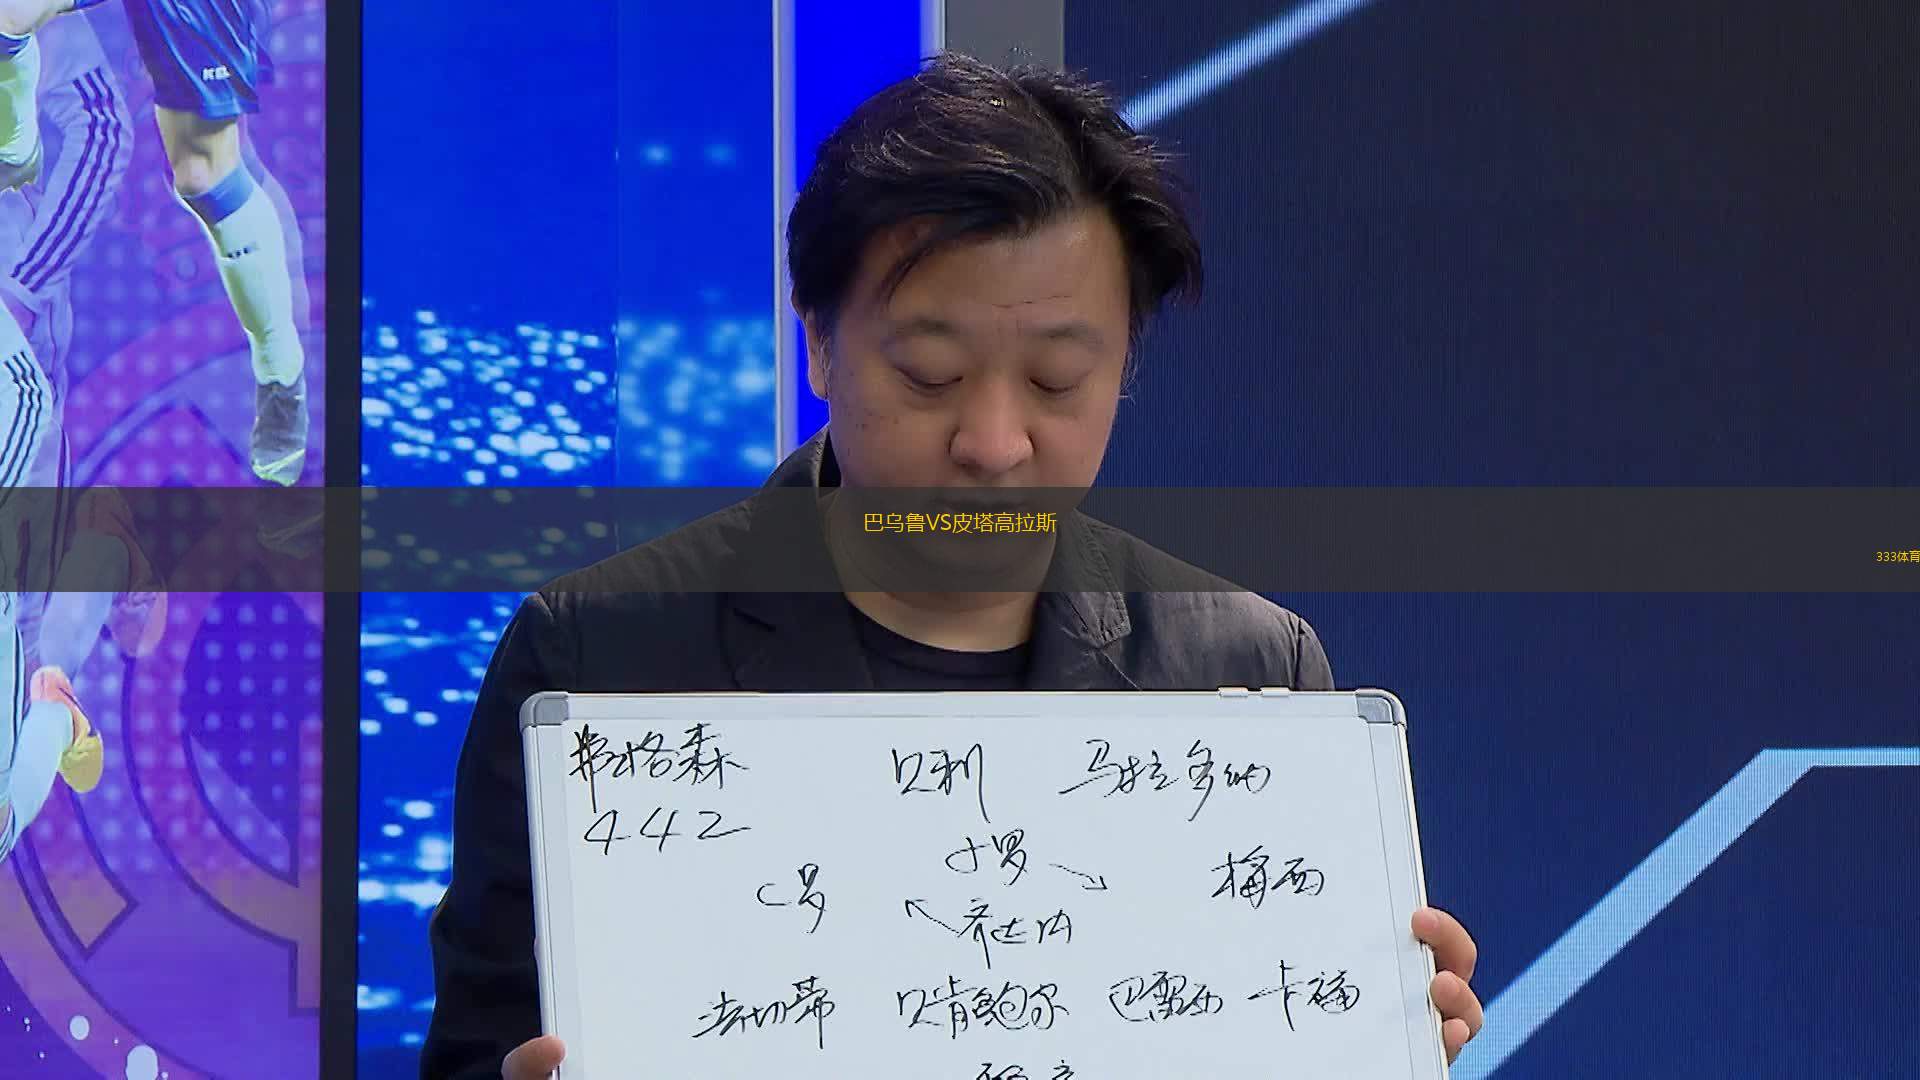 巴乌鲁VS皮塔高拉斯
333体育
弗格森 贝利 马拉多纳
442
小罗
C罗 梅西
齐达内
法切蒂 贝肯鲍尔 巴雷西 卡福